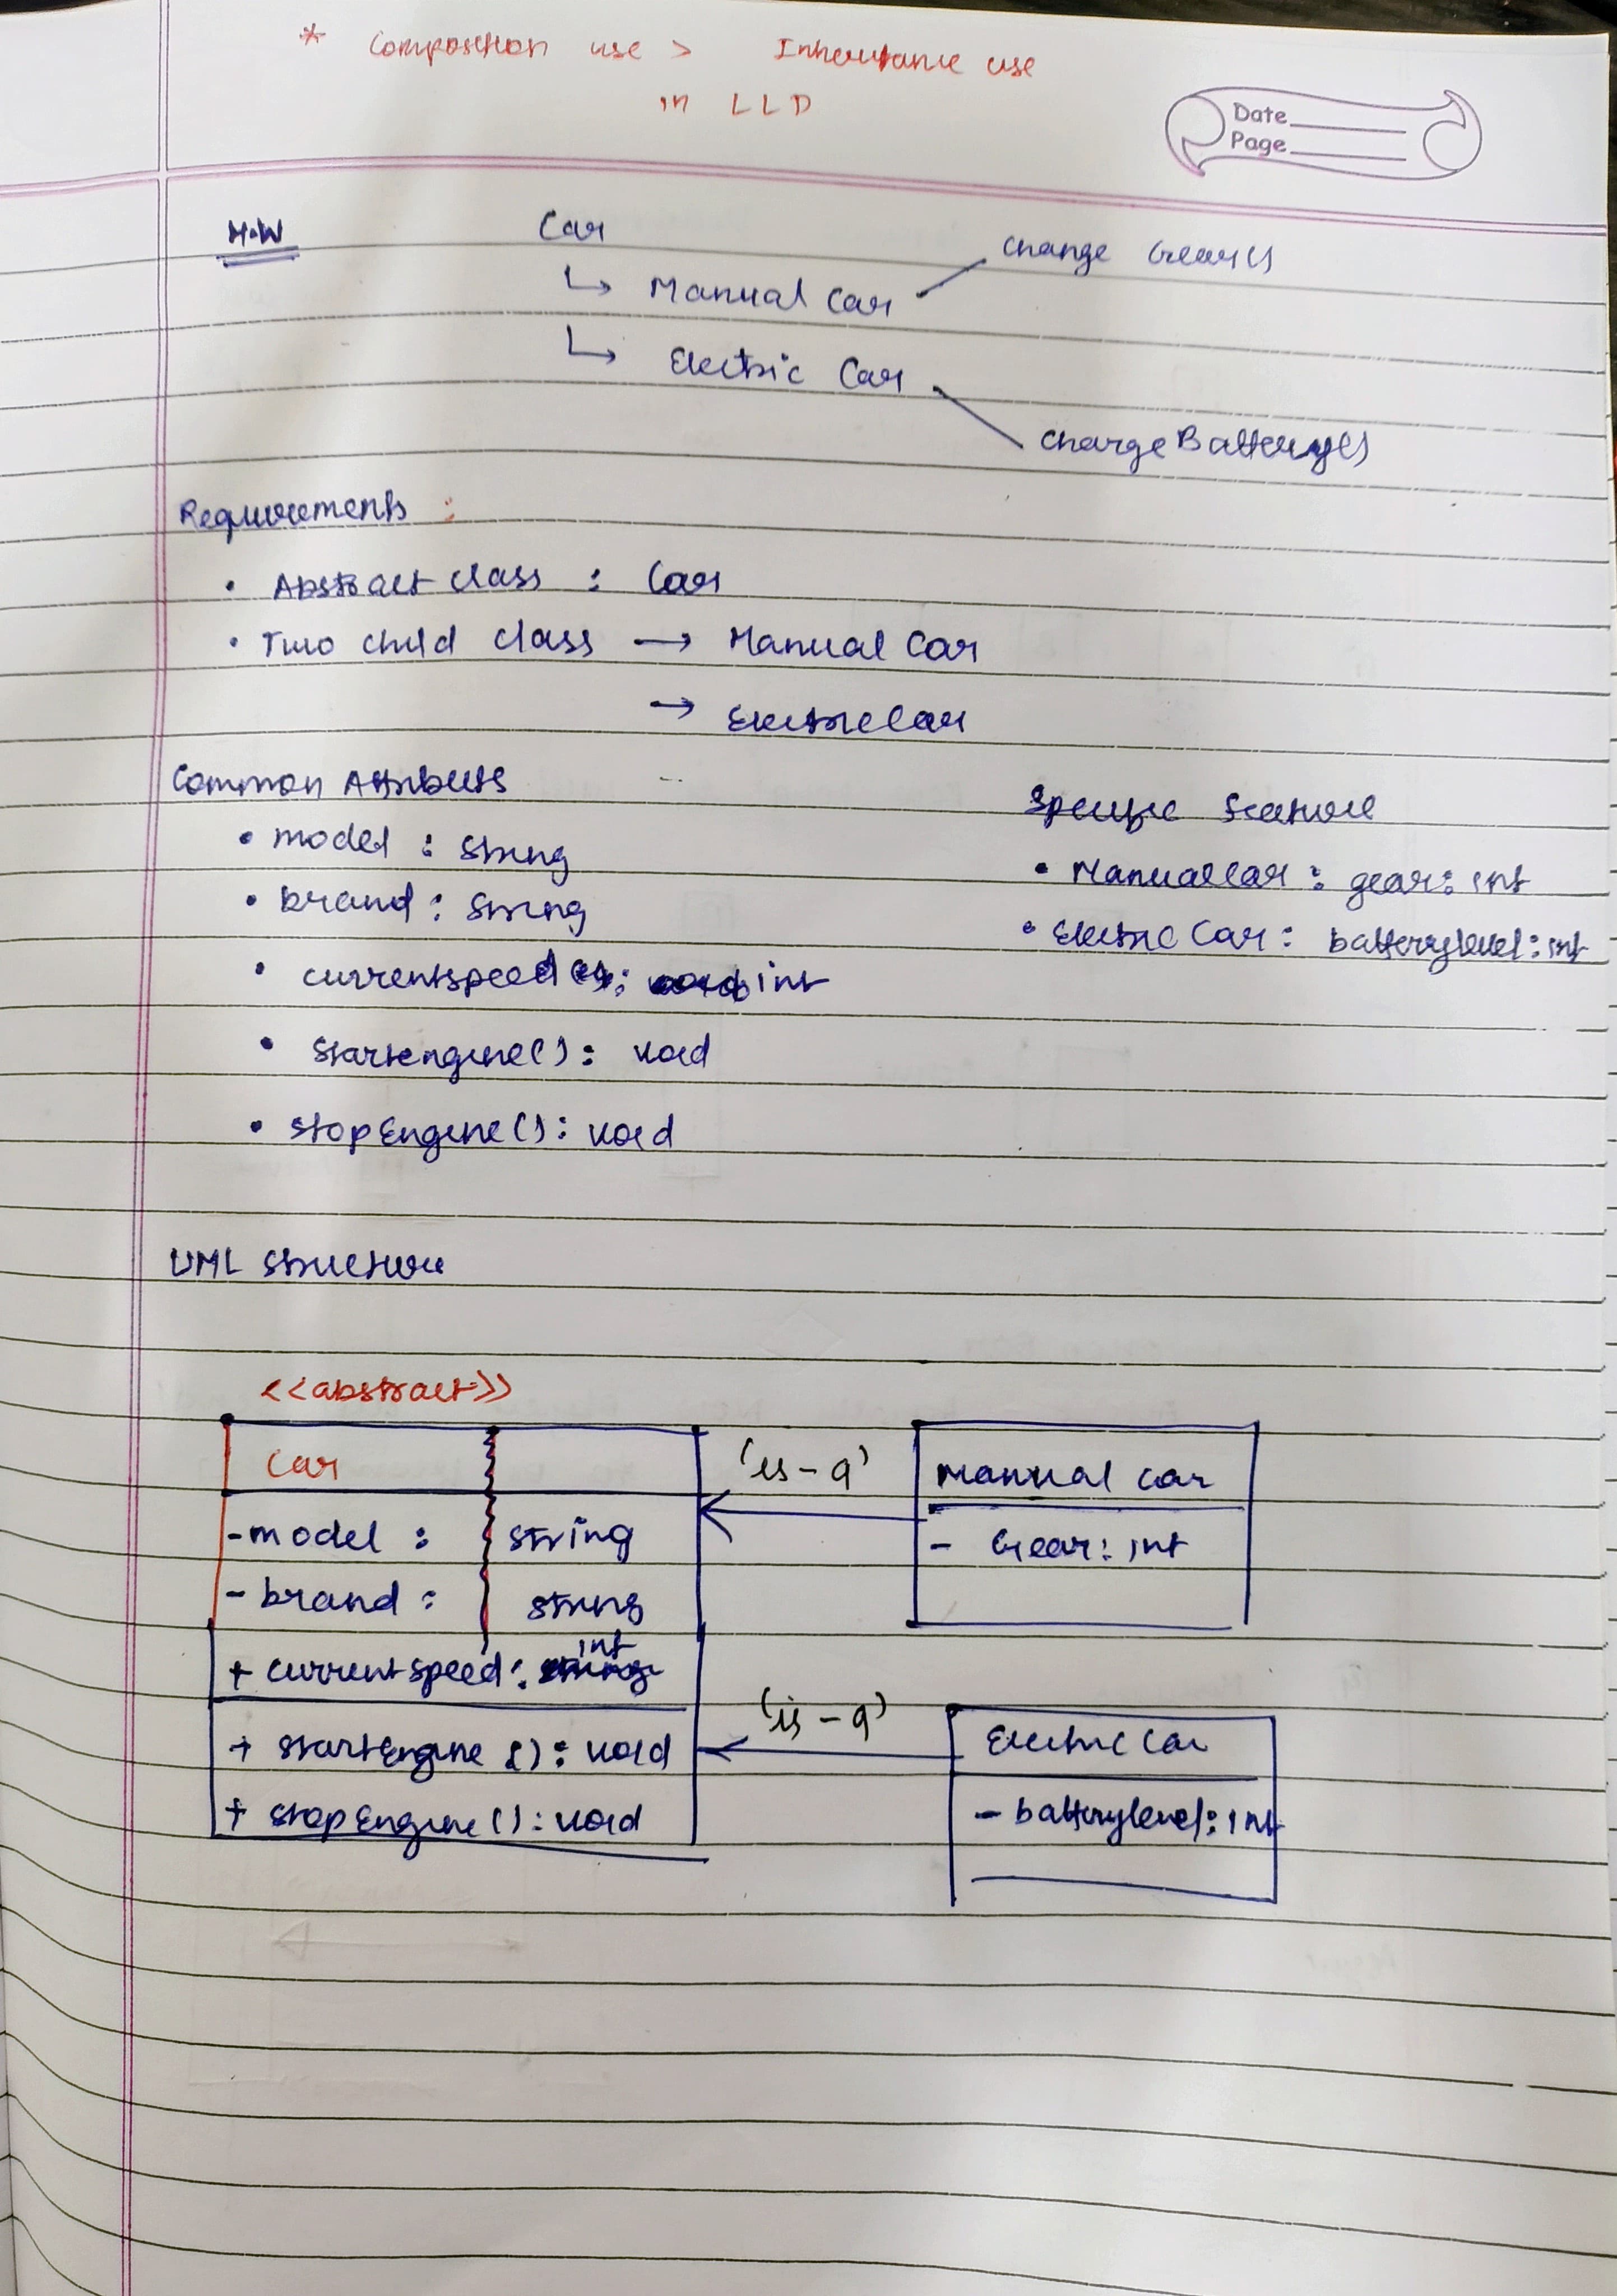 * Composition use > Inheritance use
in LLD
Date
Page
H.W
Car
↳ Manual Car
change Gear()
↳ Electric Car
charge Battery()
Requirements :
• Abstract class : Car
• Two child class → Manual Car
→ ElectricCar
Common Attributes
• model : string
• brand : string
• currentspeed : int
• startengine() : void
• stopEngine() : void
Specific feature
• ManualCar : gear : int
• Electric Car : batterylevel : int
UML structure
<<abstract>>
Car
- model : string
- brand : string
+ currentspeed : int
+ startEngine () : void
+ stopEngine () : void
(is - a)
Manual car
- Gear : int
(is - a)
Electric Car
- batterylevel : int